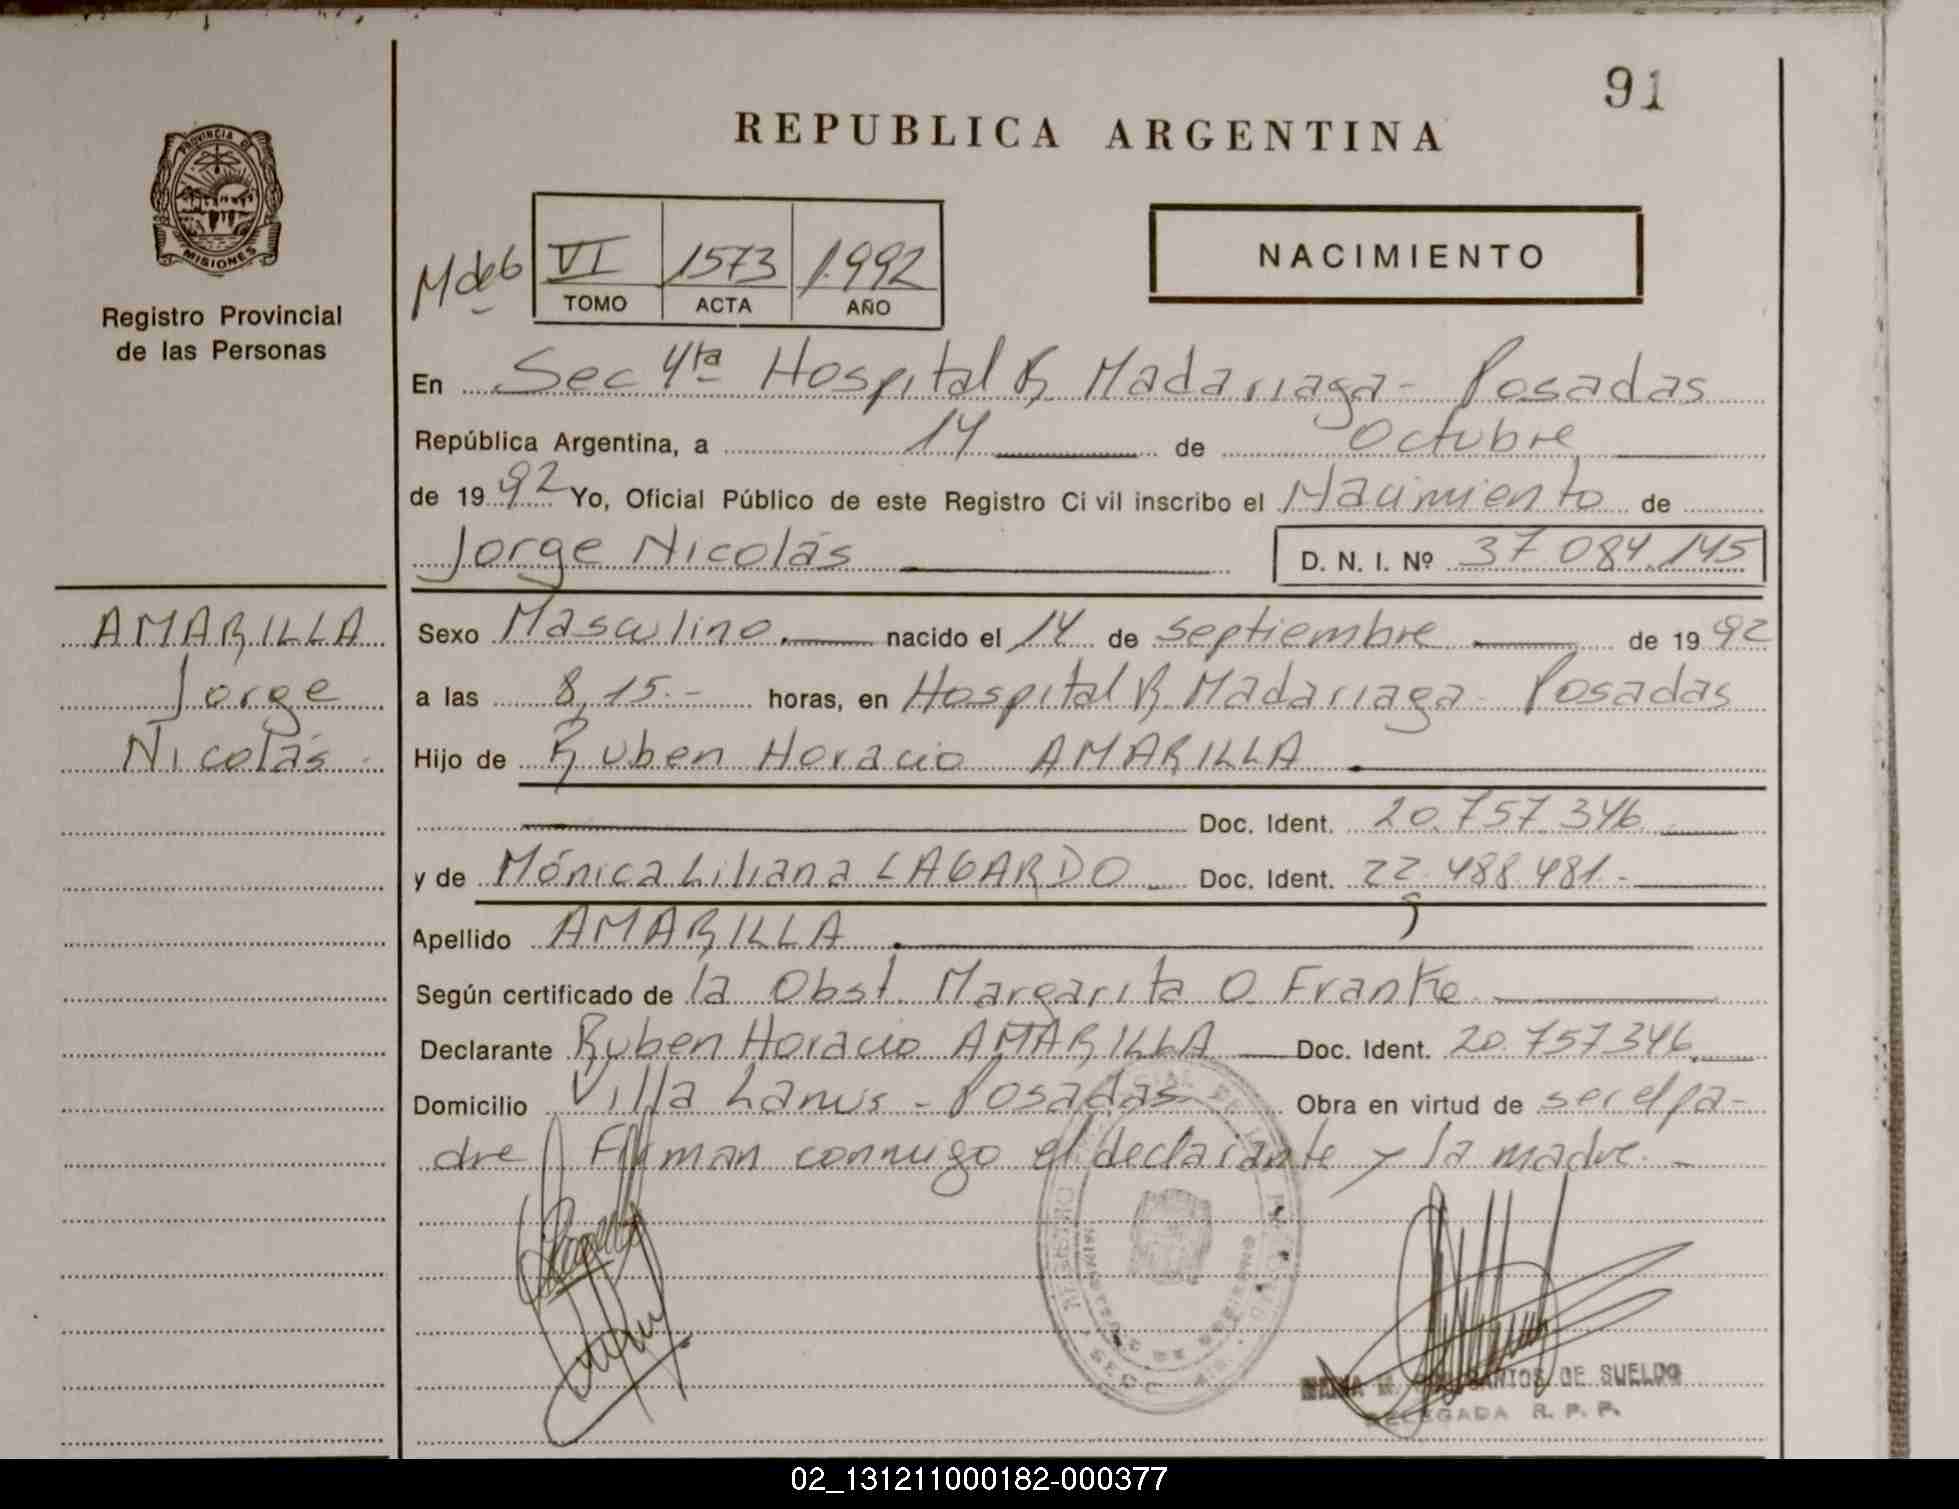 91
REPUBLICA ARGENTINA
PROVINCIA DE
MISIONES
Registro Provincial
de las Personas
NACIMIENTO
VI 1573 1.992
TOMO ACTA AÑO
En Sec 4ta Hospital R. Madariaga - Posadas
República Argentina, a 14 de Octubre
de 1992 Yo, Oficial Público de este Registro Ci vil inscribo el Nacimiento de
Jorge Nicolás D. N. I. Nº 37 084.145
AMARILLA
Jorge
Nicolás
Sexo Masculino. nacido el 14 de septiembre de 1992
a las 8,15.- horas, en Hospital R. Madariaga - Posadas
Hijo de Ruben Horacio AMARILLA
Doc. Ident. 20.757.346
y de Mónica Liliana LAGARDO Doc. Ident. 22.488.481.-
Apellido AMARILLA
Según certificado de la Obst. Margarita O. Franke
Declarante Ruben Horacio AMARILLA Doc. Ident. 20.757.346.
Domicilio Villa Lanus - Posadas Obra en virtud de ser el pa-
dre Firman conmigo el declarante y la madre. -
DE SUELDO
DELEGADA R. P. P.
02_131211000182-000377